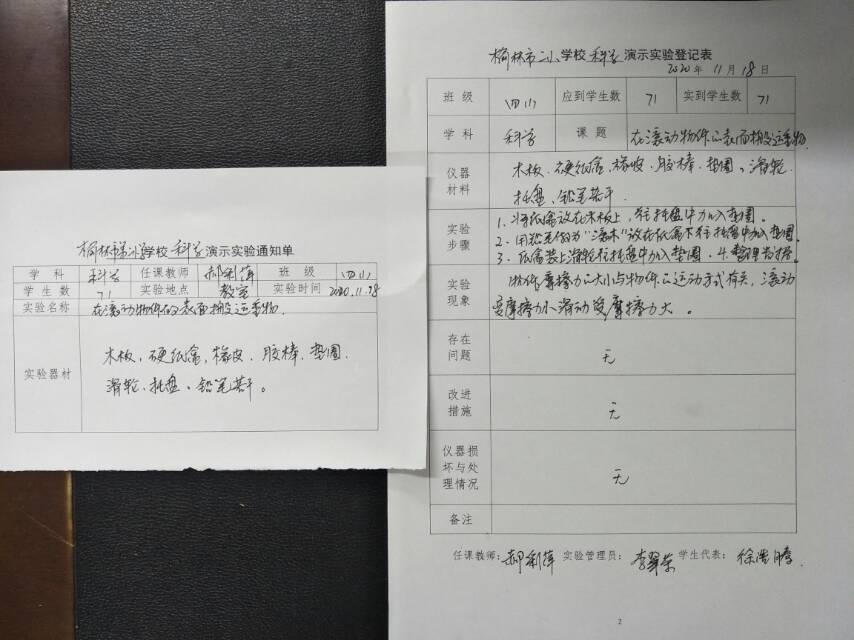 榆林市第二小学校科学演示实验通知单
学科 科学 任课教师 郝利萍 班级 四(1)
学生数 71 实验地点 教室 实验时间 2020.11.18
实验名称 在滚动物体的表面搬运重物.
实验器材 木板，硬纸盒，橡皮．胶棒．垫圈．
滑轮．托盘．铅笔若干。
榆林市二小学校科学演示实验登记表
2020年11月18日
班级 四(1) 应到学生数 71 实到学生数 71
学科 科学 课题 在滚动物体的表面搬运重物
仪器材料 木板、硬纸盒、橡皮、胶棒、垫圈、滑轮、
托盘、铅笔若干.
实验步骤 1.将纸盒放在木板上，往托盘中加入垫圈。
2.用铅笔做为"滚木"放在纸盒下往托盘中加入垫圈.
3.纸盒装上滑轮往托盘中加入垫圈.4.整理数据.
实验现象 物体摩擦力的大小与物体的运动方式有关，滚动
受摩擦力小滑动受摩擦力大。
存在问题 无
改进措施 无
仪器损坏与处理情况 无
备注
任课教师：郝利萍 实验管理员：李翠荣 学生代表：徐浩腾.
2